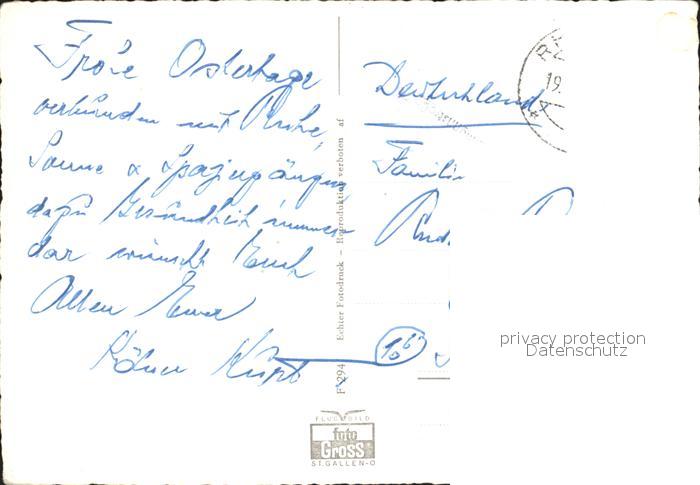 Frohe Ostertage
verbunden mit Ruhe,
Sonne & Spaziergängen
dazu Gesundheit immer
dar wünscht Euch
Allen Euer
Kurt
Deutschland
Familie
Echter Fotodruck — Reproduktion verboten af
F 294
FLUGBILD
foto
Gross
ST.GALLEN-O
19.
privacy protection
Datenschutz